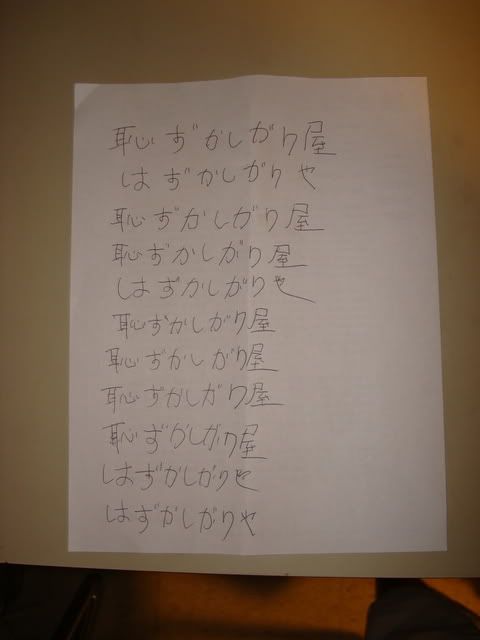 恥ずかしがり屋
はずかしがりや
恥ずかしがり屋
恥ずかしがり屋
はずかしがりや
恥ずかしがり屋
恥ずかしがり屋
恥ずかしがり屋
恥ずかしがり屋
はずかしがりや
はずかしがりや